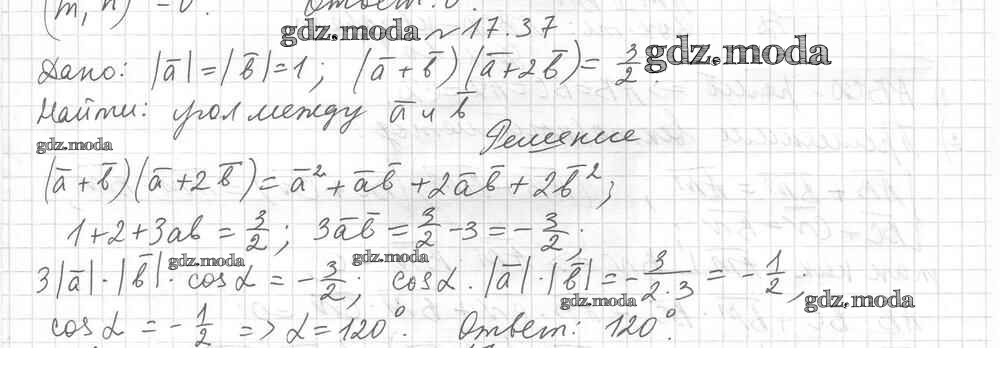 (m, n) = 0. Ответ: 0.
gdz.moda № 17.37
Дано: |a̅| = |b̅| = 1; (a̅ + b̅)(a̅ + 2b̅) = 3/2. gdz.moda
Найти: угол между a̅ и b̅
gdz.moda Решение
(a̅ + b̅)(a̅ + 2b̅) = a̅² + a̅b̅ + 2a̅b̅ + 2b̅²;
1 + 2 + 3ab = 3/2; 3a̅b̅ = 3/2 - 3 = - 3/2;
gdz.moda gdz.moda
3|a̅| · |b̅| · cos α = - 3/2; cos α · |a̅| · |b̅| = - 3/(2·3) = - 1/2;
gdz.moda gdz.moda
cos α = - 1/2 => α = 120°. Ответ: 120°.